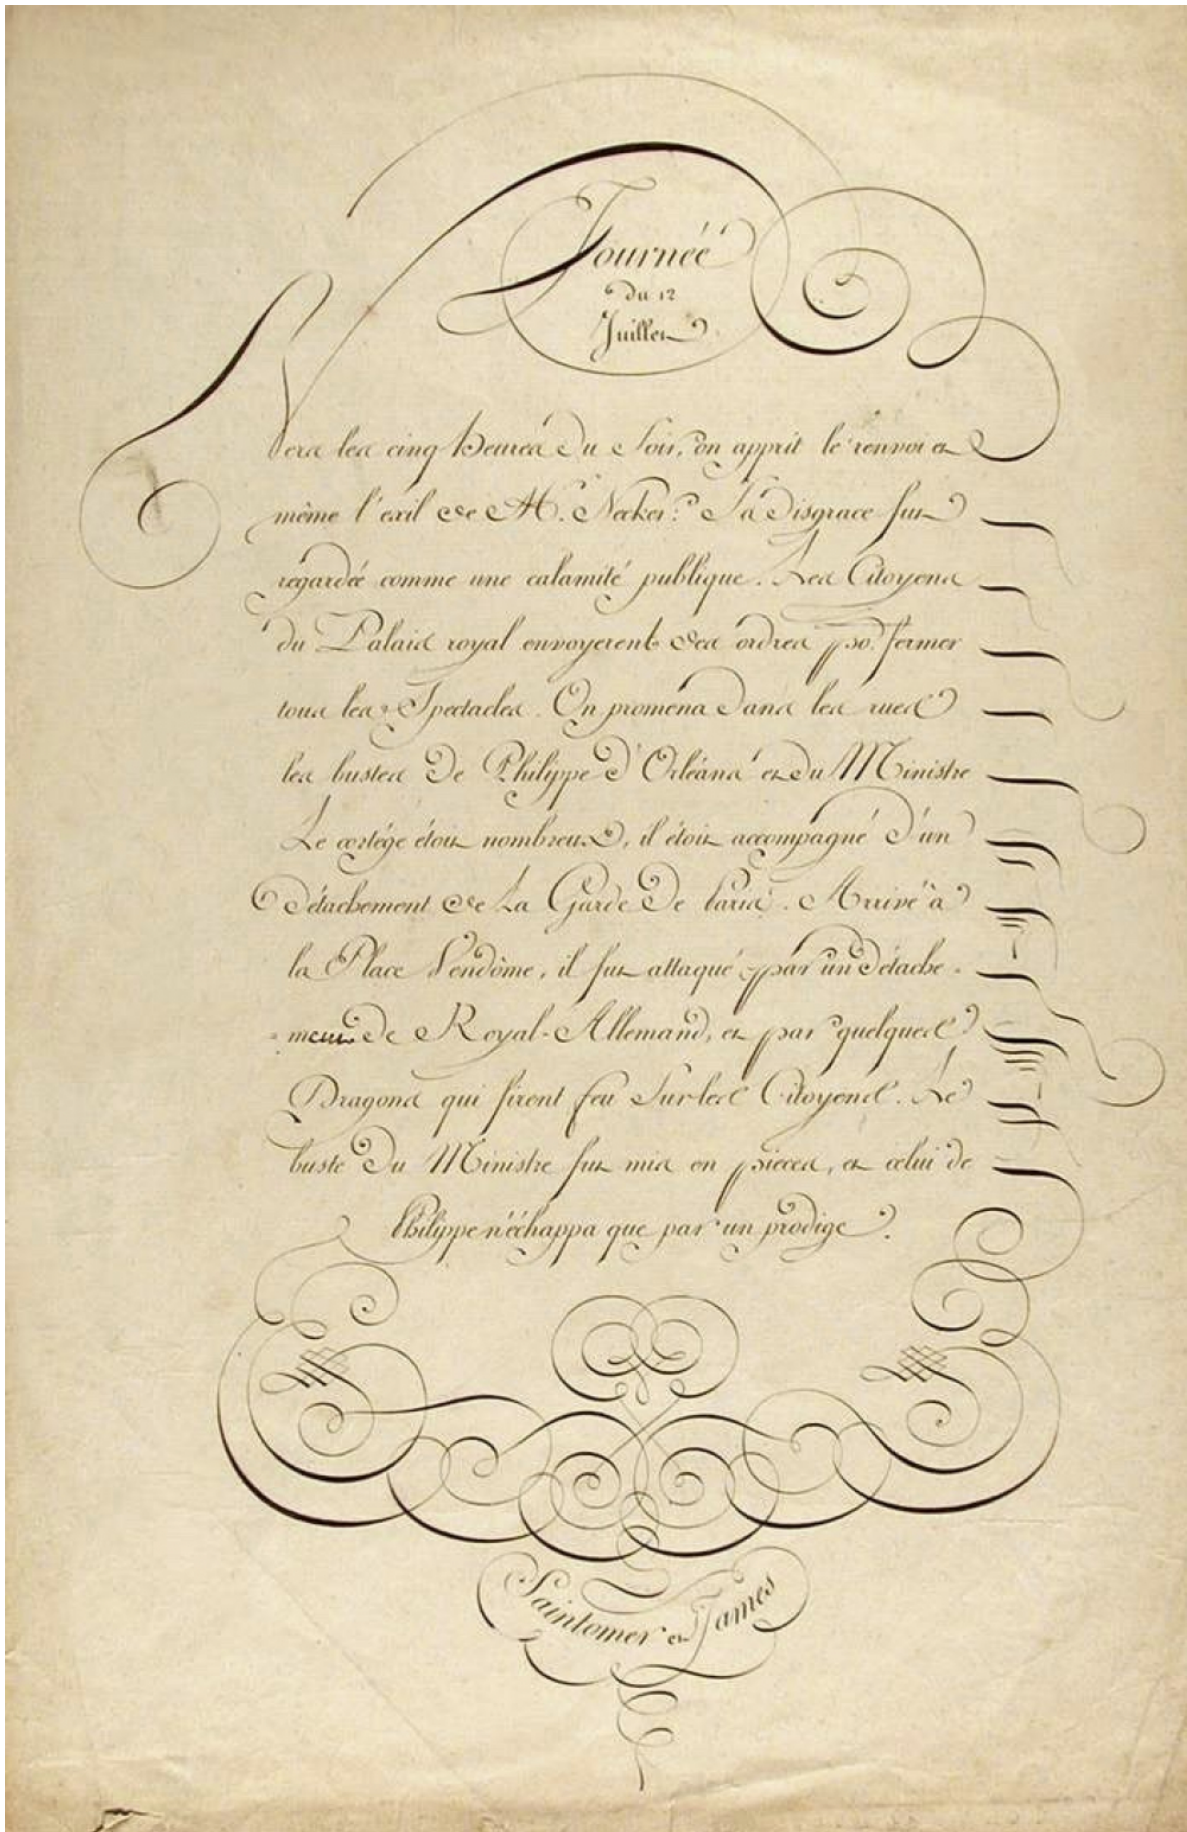 Journée
du 12
Juillet
Vers les cinq heures du Soir, on apprit le renvoi et
même l'exil de M. Necker. Sa disgrace fut
regardée comme une calamité publique. Les Citoyens
du Palais royal envoyerent des ordres po. fermer
tous les Spectacles. On promena dans les rues
les bustes de Philippe d'Orléans et du Ministre
Le cortége étoit nombreux, il étoit accompagné d'un
détachement de la Garde de Paris. Arrivé à
la Place Vendôme, il fut attaqué par un détache-
-ment de Royal-Allemand, et par quelques
Dragons qui firent feu Sur les Citoyens. Le
buste du Ministre fut mis en pieces, et celui de
Philippe n'échappa que par un prodige.
Saintomer et James